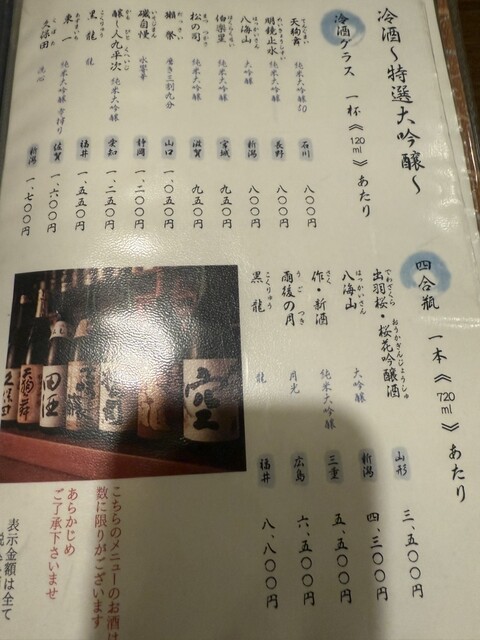 冷酒～特選大吟醸～
冷酒グラス 一杯《120ml》あたり
天狗舞 純米大吟醸50 石川 八〇〇円
明鏡止水 純米大吟醸 長野 八〇〇円
八海山 大吟醸 新潟 八〇〇円
伯楽星 純米大吟醸 宮城 九五〇円
松の司 純米大吟醸 滋賀 九五〇円
獺祭 磨き三割九分 山口 一、〇五〇円
磯自慢 水響華 静岡 一、二〇〇円
醸し人九平次 純米大吟醸 愛知 一、二五〇円
黒龍 龍 福井 一、五五〇円
東一 純米大吟醸 雫搾り 佐賀 一、六〇〇円
久保田 洗心 新潟 一、七〇〇円
四合瓶 一本《720ml》あたり
出羽桜・桜花吟醸酒 山形 三、五〇〇円
八海山 大吟醸 新潟 四、三〇〇円
作・新酒 純米大吟醸 三重 五、五〇〇円
雨後の月 月光 広島 六、五〇〇円
黒龍 龍 福井 八、八〇〇円
久保田
天狗舞
田酒
空
こちらのメニューのお酒は
数に限りがございます
あらかじめ
ご了承下さいませ
表示金額は全て